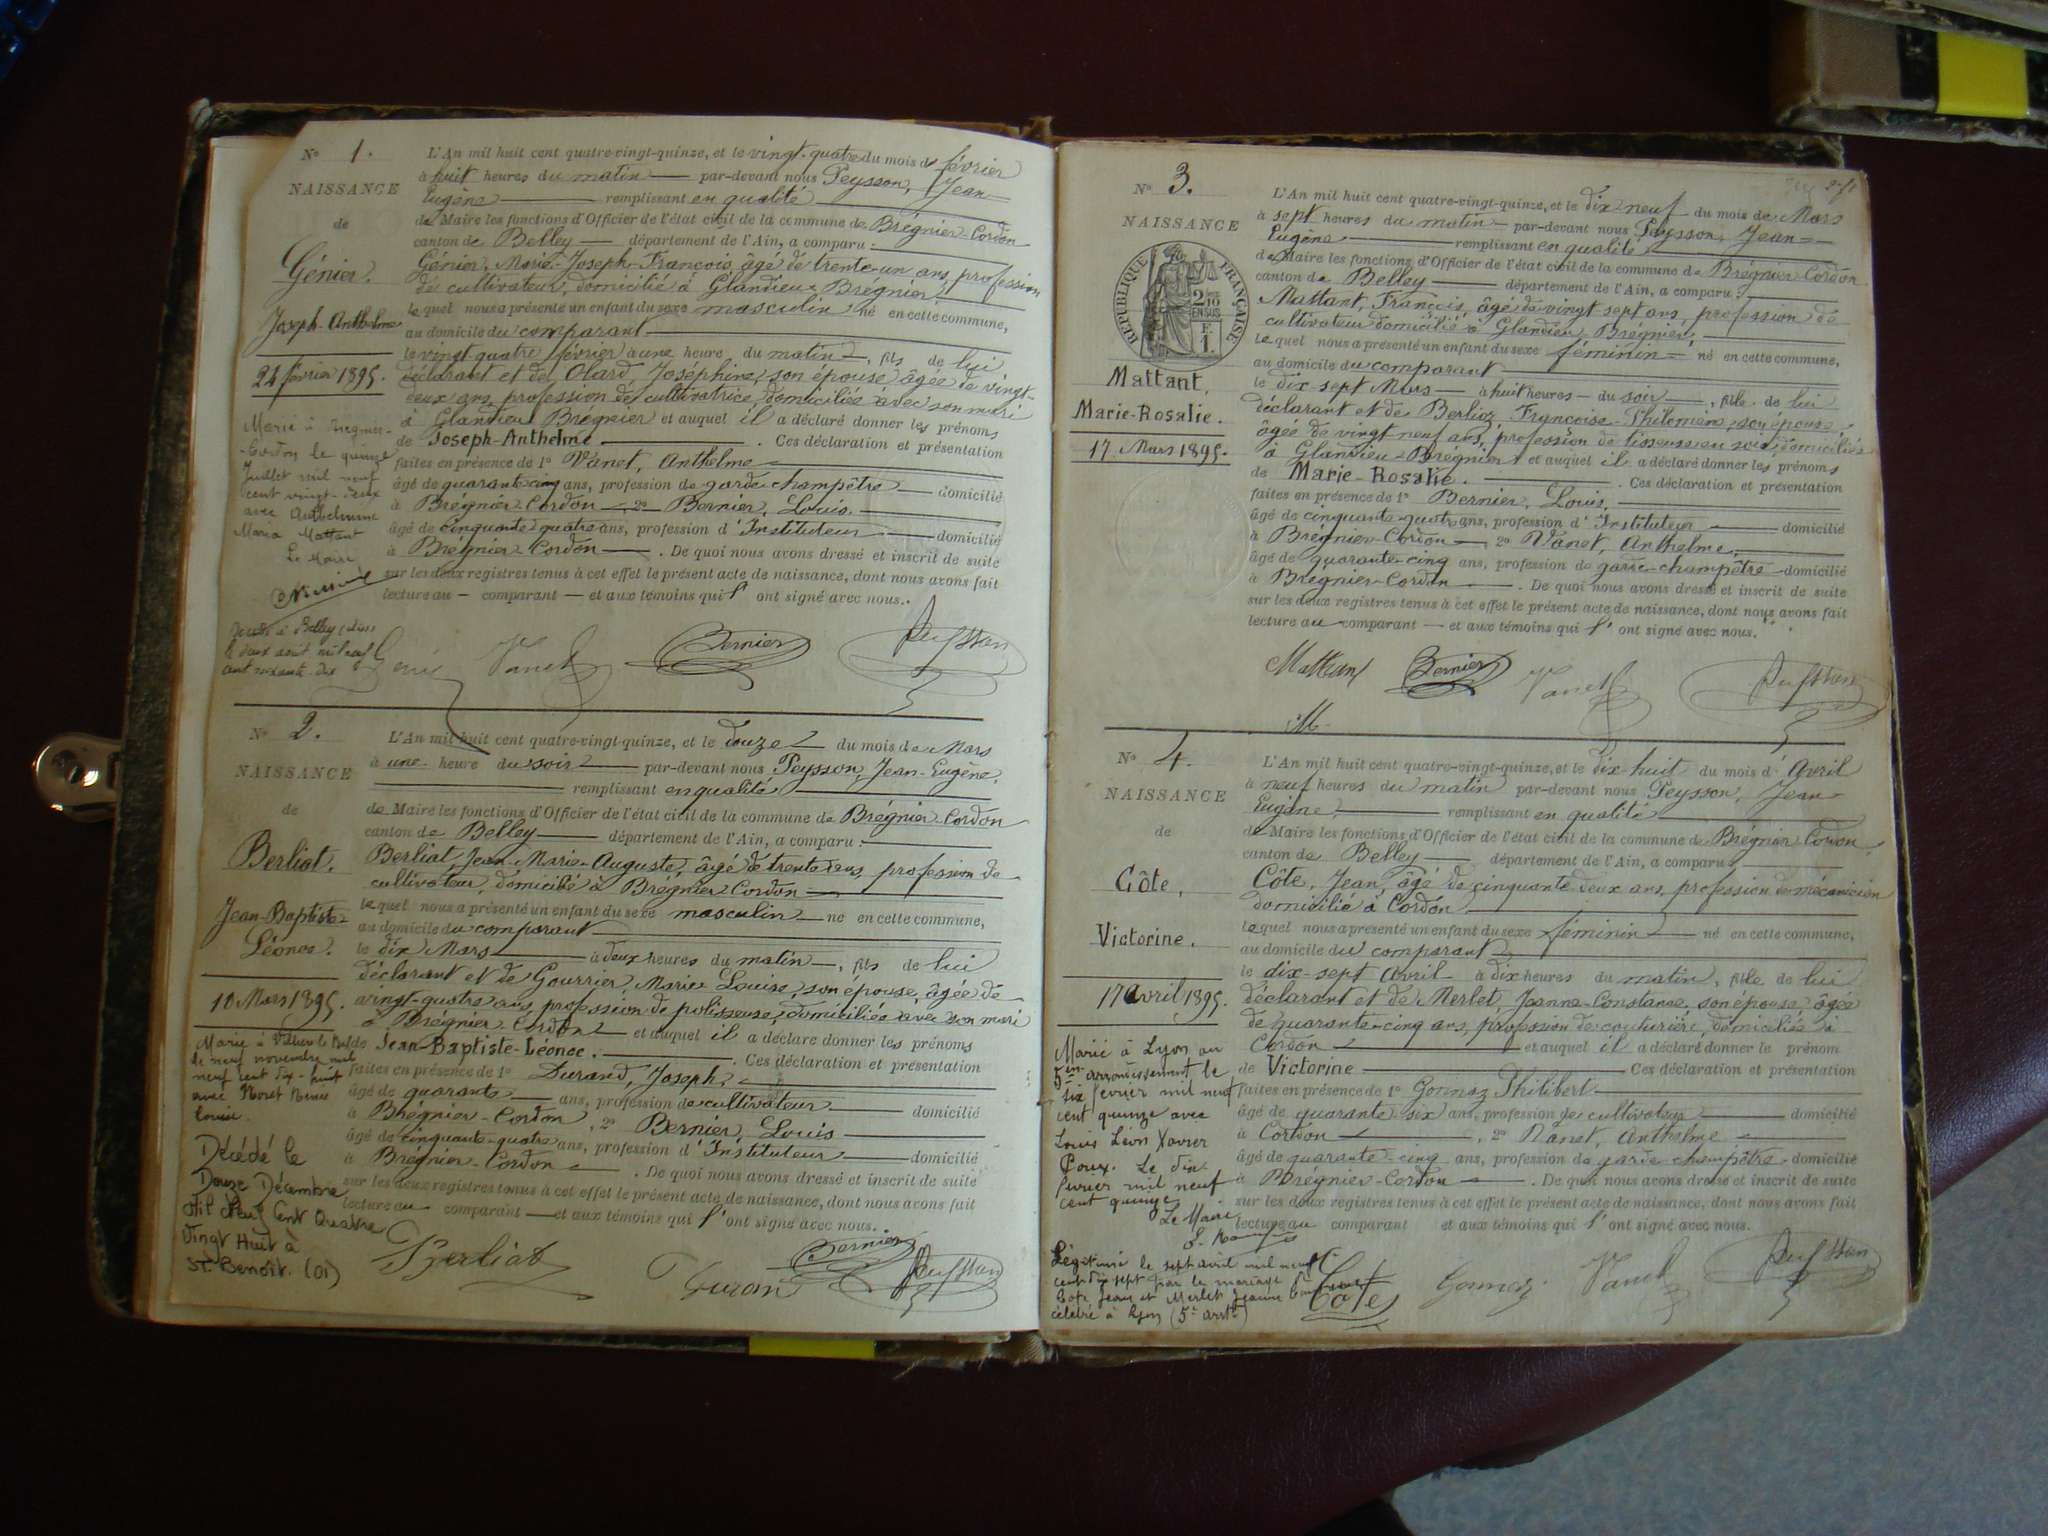 N° 1.
NAISSANCE
de
Génier.
Joseph-Anthelme
24 février 1895.
Marié à Brégnier-
-Cordon le quinze
Juillet mil neuf
cent vingt-deux
avec Anthelmine
Maria Mattant
Le Maire
Décédé à Belley (Ain)
le deux août mil neuf
cent soixante-dix
L'An mil huit cent quatre-vingt-quinze, et le vingt-quatre du mois de février
à huit heures du matin par-devant nous Peysson, Jean-
Eugène remplissant en qualité
de Maire les fonctions d'Officier de l'état civil de la commune de Brégnier-Cordon
canton de Belley département de l'Ain, a comparu :
Génier, Marie-Joseph-François, âgé de trente-un ans, profession
de cultivateur, domicilié à Glandieu-Brégnier
lequel nous a présenté un enfant du sexe masculin né en cette commune,
au domicile du comparant
le vingt quatre février à une heure du matin, fils de lui
déclarant et de Olard, Joséphine, son épouse, âgée de vingt-
deux ans, profession de cultivatrice, domiciliée avec son mari
à Glandieu Brégnier et auquel il a déclaré donner les prénoms
de Joseph-Anthelme . Ces déclaration et présentation
faites en présence de 1° Vanet, Anthelme
âgé de quarante cinq ans, profession de garde-champêtre domicilié
à Brégnier-Cordon 2° Bernier, Louis.
âgé de cinquante quatre ans, profession d'Instituteur domicilié
à Brégnier-Cordon . De quoi nous avons dressé et inscrit de suite
sur les deux registres tenus à cet effet le présent acte de naissance, dont nous avons fait
lecture au comparant et aux témoins qui l'ont signé avec nous.
Vanet Bernier Peysson
N° 2.
NAISSANCE
de
Berliat.
Jean-Baptiste-
Léonce.
10 Mars 1895.
le neuf novembre mil
neuf cent dix-huit
avec Moret Marie
Louise.
Décédé le
Douze Décembre
Mil Neuf Cent Quatre
Vingt Huit à
St. Benoît. (01)
L'An mil huit cent quatre-vingt-quinze, et le douze du mois de Mars
à une heure du soir par-devant nous Peysson, Jean-Eugène,
remplissant en qualité
de Maire les fonctions d'Officier de l'état civil de la commune de Brégnier-Cordon
canton de Belley département de l'Ain, a comparu :
Berliat, Jean-Marie-Auguste, âgé de trente ans, profession de
cultivateur, domicilié à Brégnier-Cordon
lequel nous a présenté un enfant du sexe masculin né en cette commune,
au domicile du comparant
le dix Mars à deux heures du matin, fils de lui
déclarant et de Gourrier, Marie Louise, son épouse, âgée de
vingt-quatre ans, profession de polisseuse, domiciliée avec son mari
à Brégnier Cordon et auquel il a déclaré donner les prénoms
de Jean-Baptiste-Léonce. . Ces déclaration et présentation
faites en présence de 1° Durand, Joseph.
âgé de quarante ans, profession de cultivateur domicilié
à Brégnier-Cordon, 2° Bernier, Louis
âgé de cinquante-quatre ans, profession d'Instituteur domicilié
à Brégnier-Cordon . De quoi nous avons dressé et inscrit de suite
sur les deux registres tenus à cet effet le présent acte de naissance, dont nous avons fait
lecture au comparant et aux témoins qui l'ont signé avec nous.
Berliat Durand Bernier Peysson
N° 3.
NAISSANCE
RÉPUBLIQUE FRANÇAISE
2/10
EN SUS
Mattant,
Marie-Rosalie.
17 Mars 1895.
L'An mil huit cent quatre-vingt-quinze, et le dix neuf du mois de Mars
à sept heures du matin par-devant nous Peysson, Jean-
Eugène remplissant en qualité
de Maire les fonctions d'Officier de l'état civil de la commune de Brégnier-Cordon
canton de Belley département de l'Ain, a comparu :
Mattant, François, âgé de vingt-sept ans, profession de
cultivateur domicilié à Glandieu-Brégnier,
lequel nous a présenté un enfant du sexe féminin né en cette commune,
au domicile du comparant
le dix sept Mars à huit heures du soir, fille de lui
déclarant et de Berlioz Françoise-Philomène, son épouse,
âgée de vingt-neuf ans, profession de tisseuse en soie, domiciliée
à Glandieu-Brégnier et auquel il a déclaré donner les prénoms
de Marie-Rosalie. . Ces déclaration et présentation
faites en présence de 1° Bernier, Louis,
âgé de cinquante-quatre ans, profession d'Instituteur domicilié
à Brégnier-Cordon 2° Vanet, Anthelme,
âgé de quarante cinq ans, profession de garde-champêtre domicilié
à Brégnier-Cordon . De quoi nous avons dressé et inscrit de suite
sur les deux registres tenus à cet effet le présent acte de naissance, dont nous avons fait
lecture au comparant et aux témoins qui l'ont signé avec nous.
Bernier Vanet Peysson
N° 4.
NAISSANCE
de
Côte,
Victorine.
17 Avril 1895.
Marié à Lyon au
5me arrondissement le
six février mil neuf
cent quinze avec
Louis Léon Xavier
Poux. Le dix
février mil neuf
cent quinze
Le Maire
Légitimée le sept avril mil neuf
cent dix sept par le mariage de
Cote Jean et Merlet Jeanne Constance
célébré à Lyon (5e arrt)
L'An mil huit cent quatre-vingt-quinze, et le dix huit du mois d'Avril
à neuf heures du matin par-devant nous Peysson, Jean-
Eugène, remplissant en qualité
de Maire les fonctions d'Officier de l'état civil de la commune de Brégnier Cordon
canton de Belley département de l'Ain, a comparu
Côte, Jean, âgé de cinquante deux ans, profession de mécanicien
domicilié à Cordon
lequel nous a présenté un enfant du sexe féminin né en cette commune,
au domicile du comparant
le dix-sept Avril à dix heures du matin, fille de lui
déclarant et de Merlet, Jeanne-Constance, son épouse, âgée
de quarante-cinq ans, profession de couturière, domiciliée à
Cordon et auquel il a déclaré donner le prénom
de Victorine Ces déclaration et présentation
faites en présence de 1° Gonnaz Philibert
âgé de quarante six ans, profession de cultivateur domicilié
à Cordon, 2° Vanet, Anthelme
âgé de quarante-cinq ans, profession de garde champêtre domicilié
à Brégnier-Cordon . De quoi nous avons dressé et inscrit de suite
sur les deux registres tenus à cet effet le présent acte de naissance, dont nous avons fait
lecture au comparant et aux témoins qui l'ont signé avec nous.
Cote Gonnaz Vanet Peysson